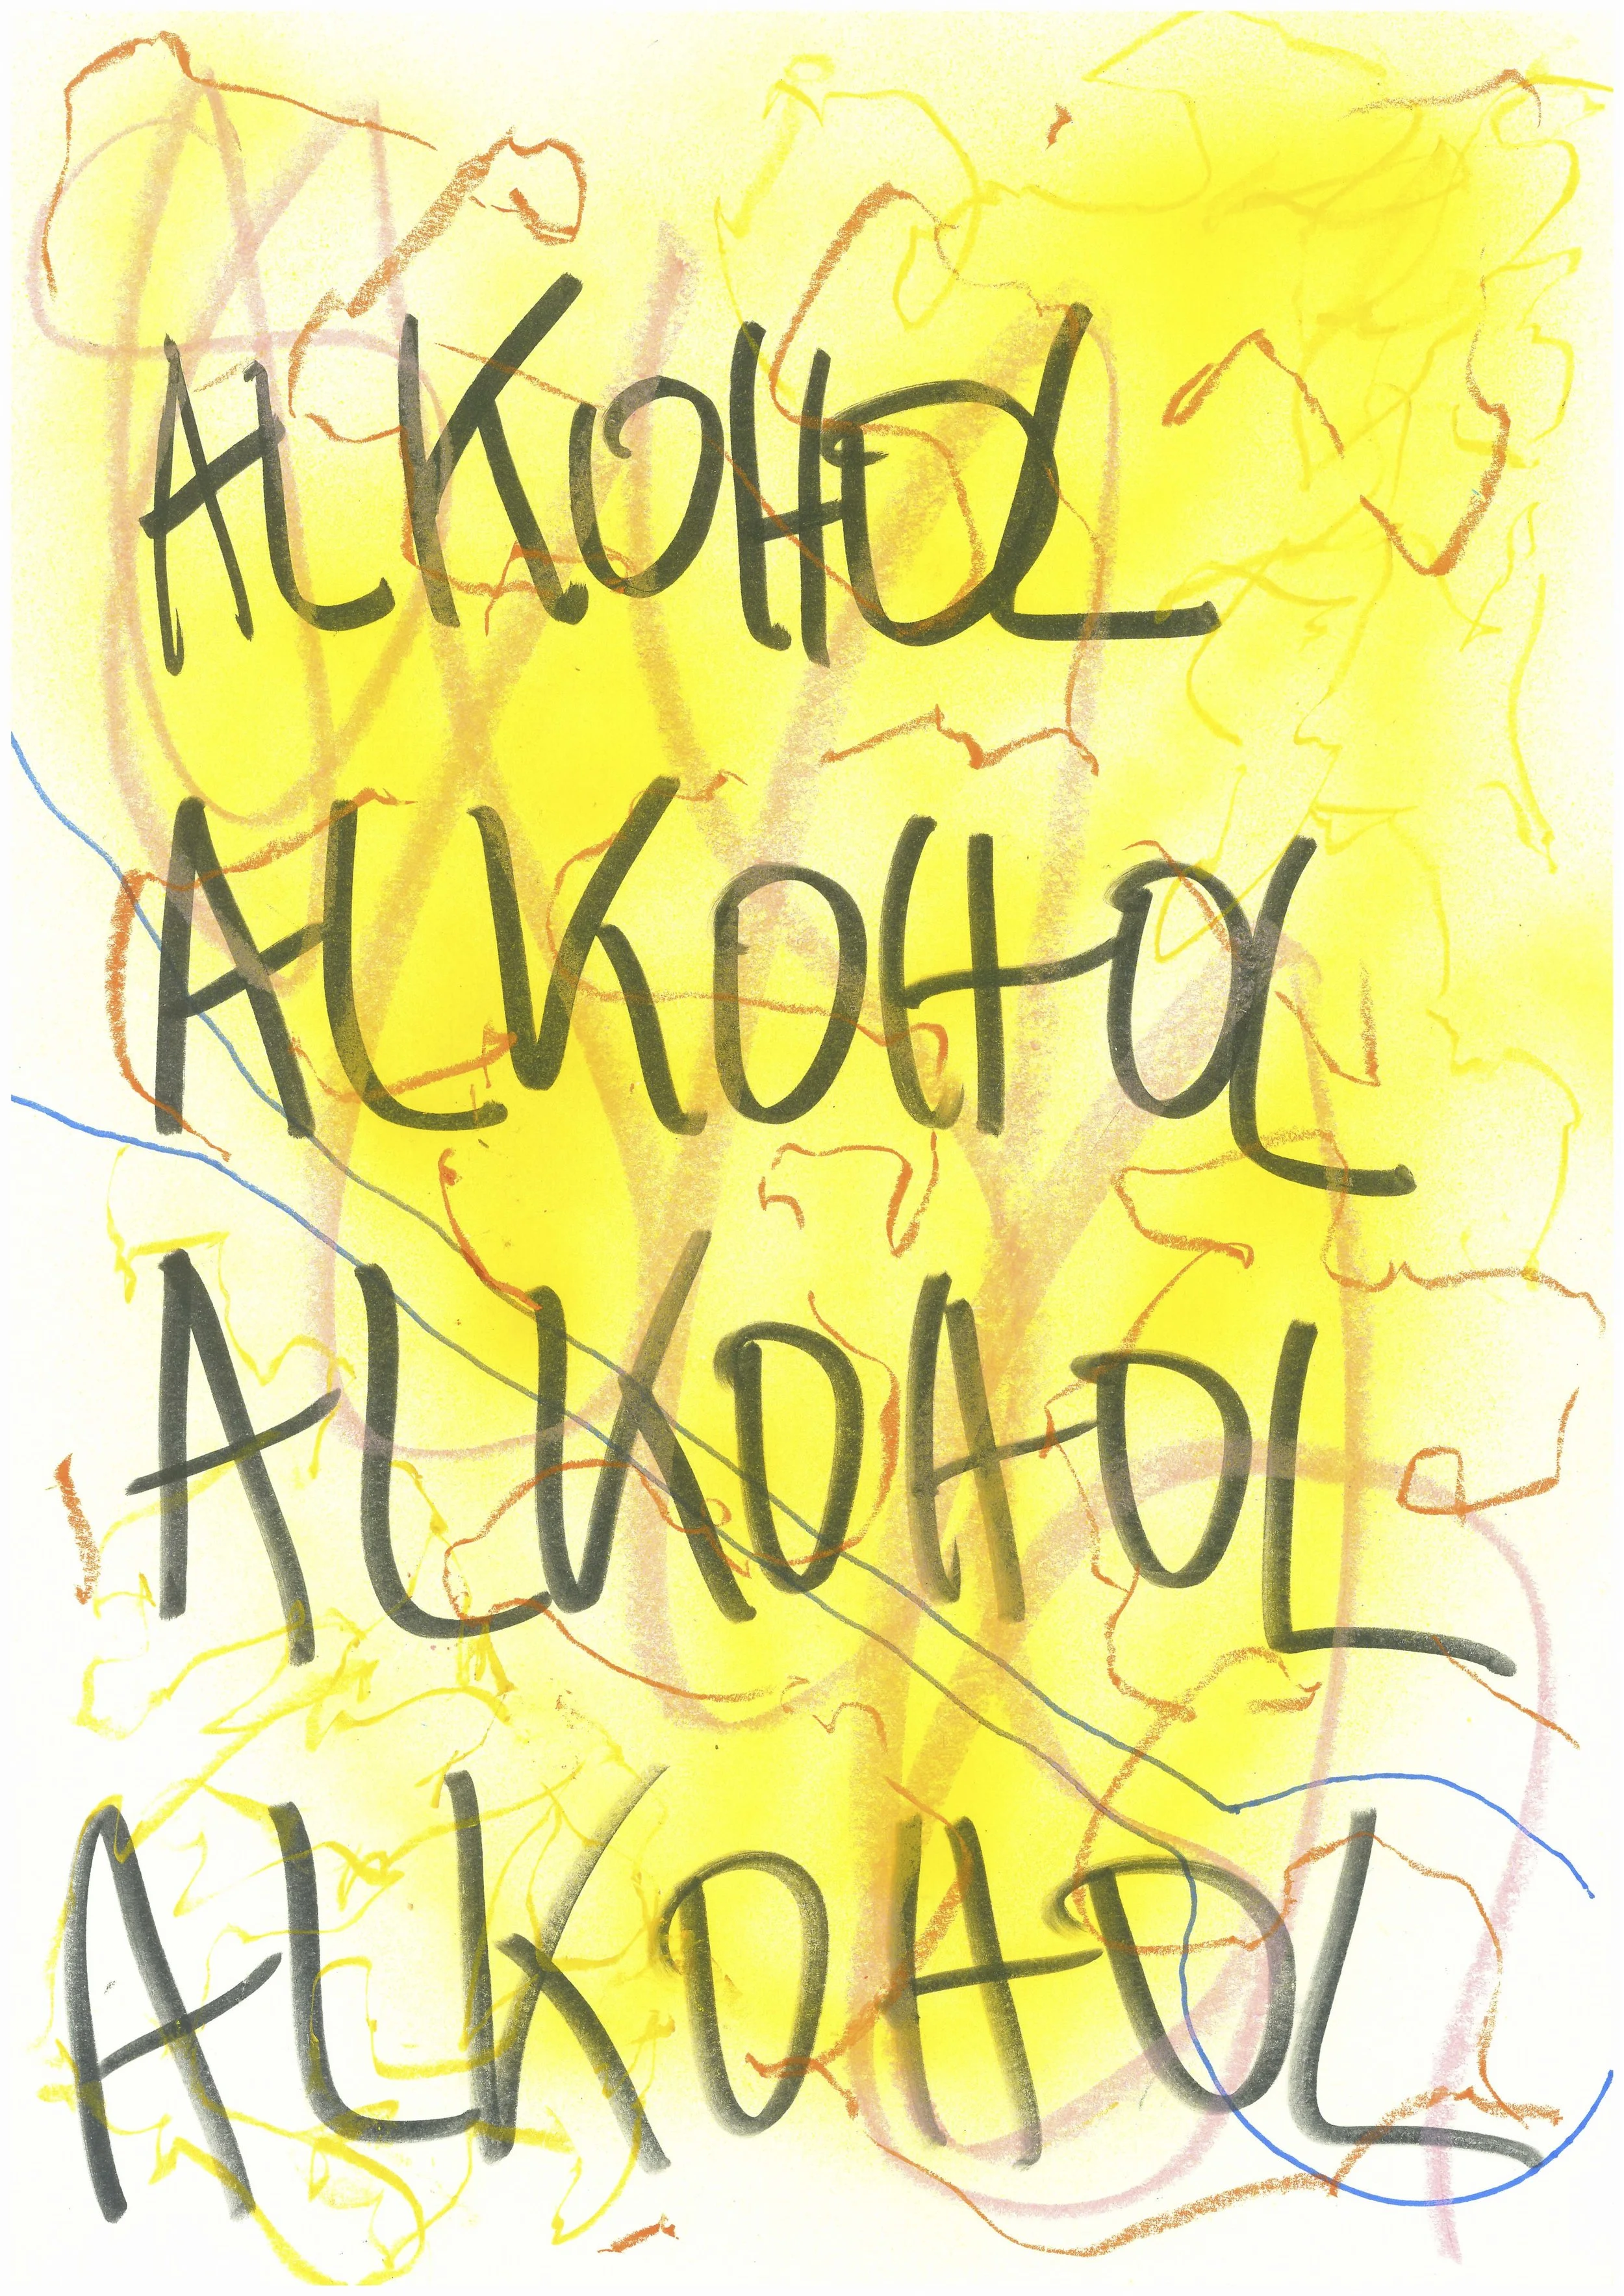 ALKOHOL
ALKOHOL
ALKOHOL
ALKOHOL